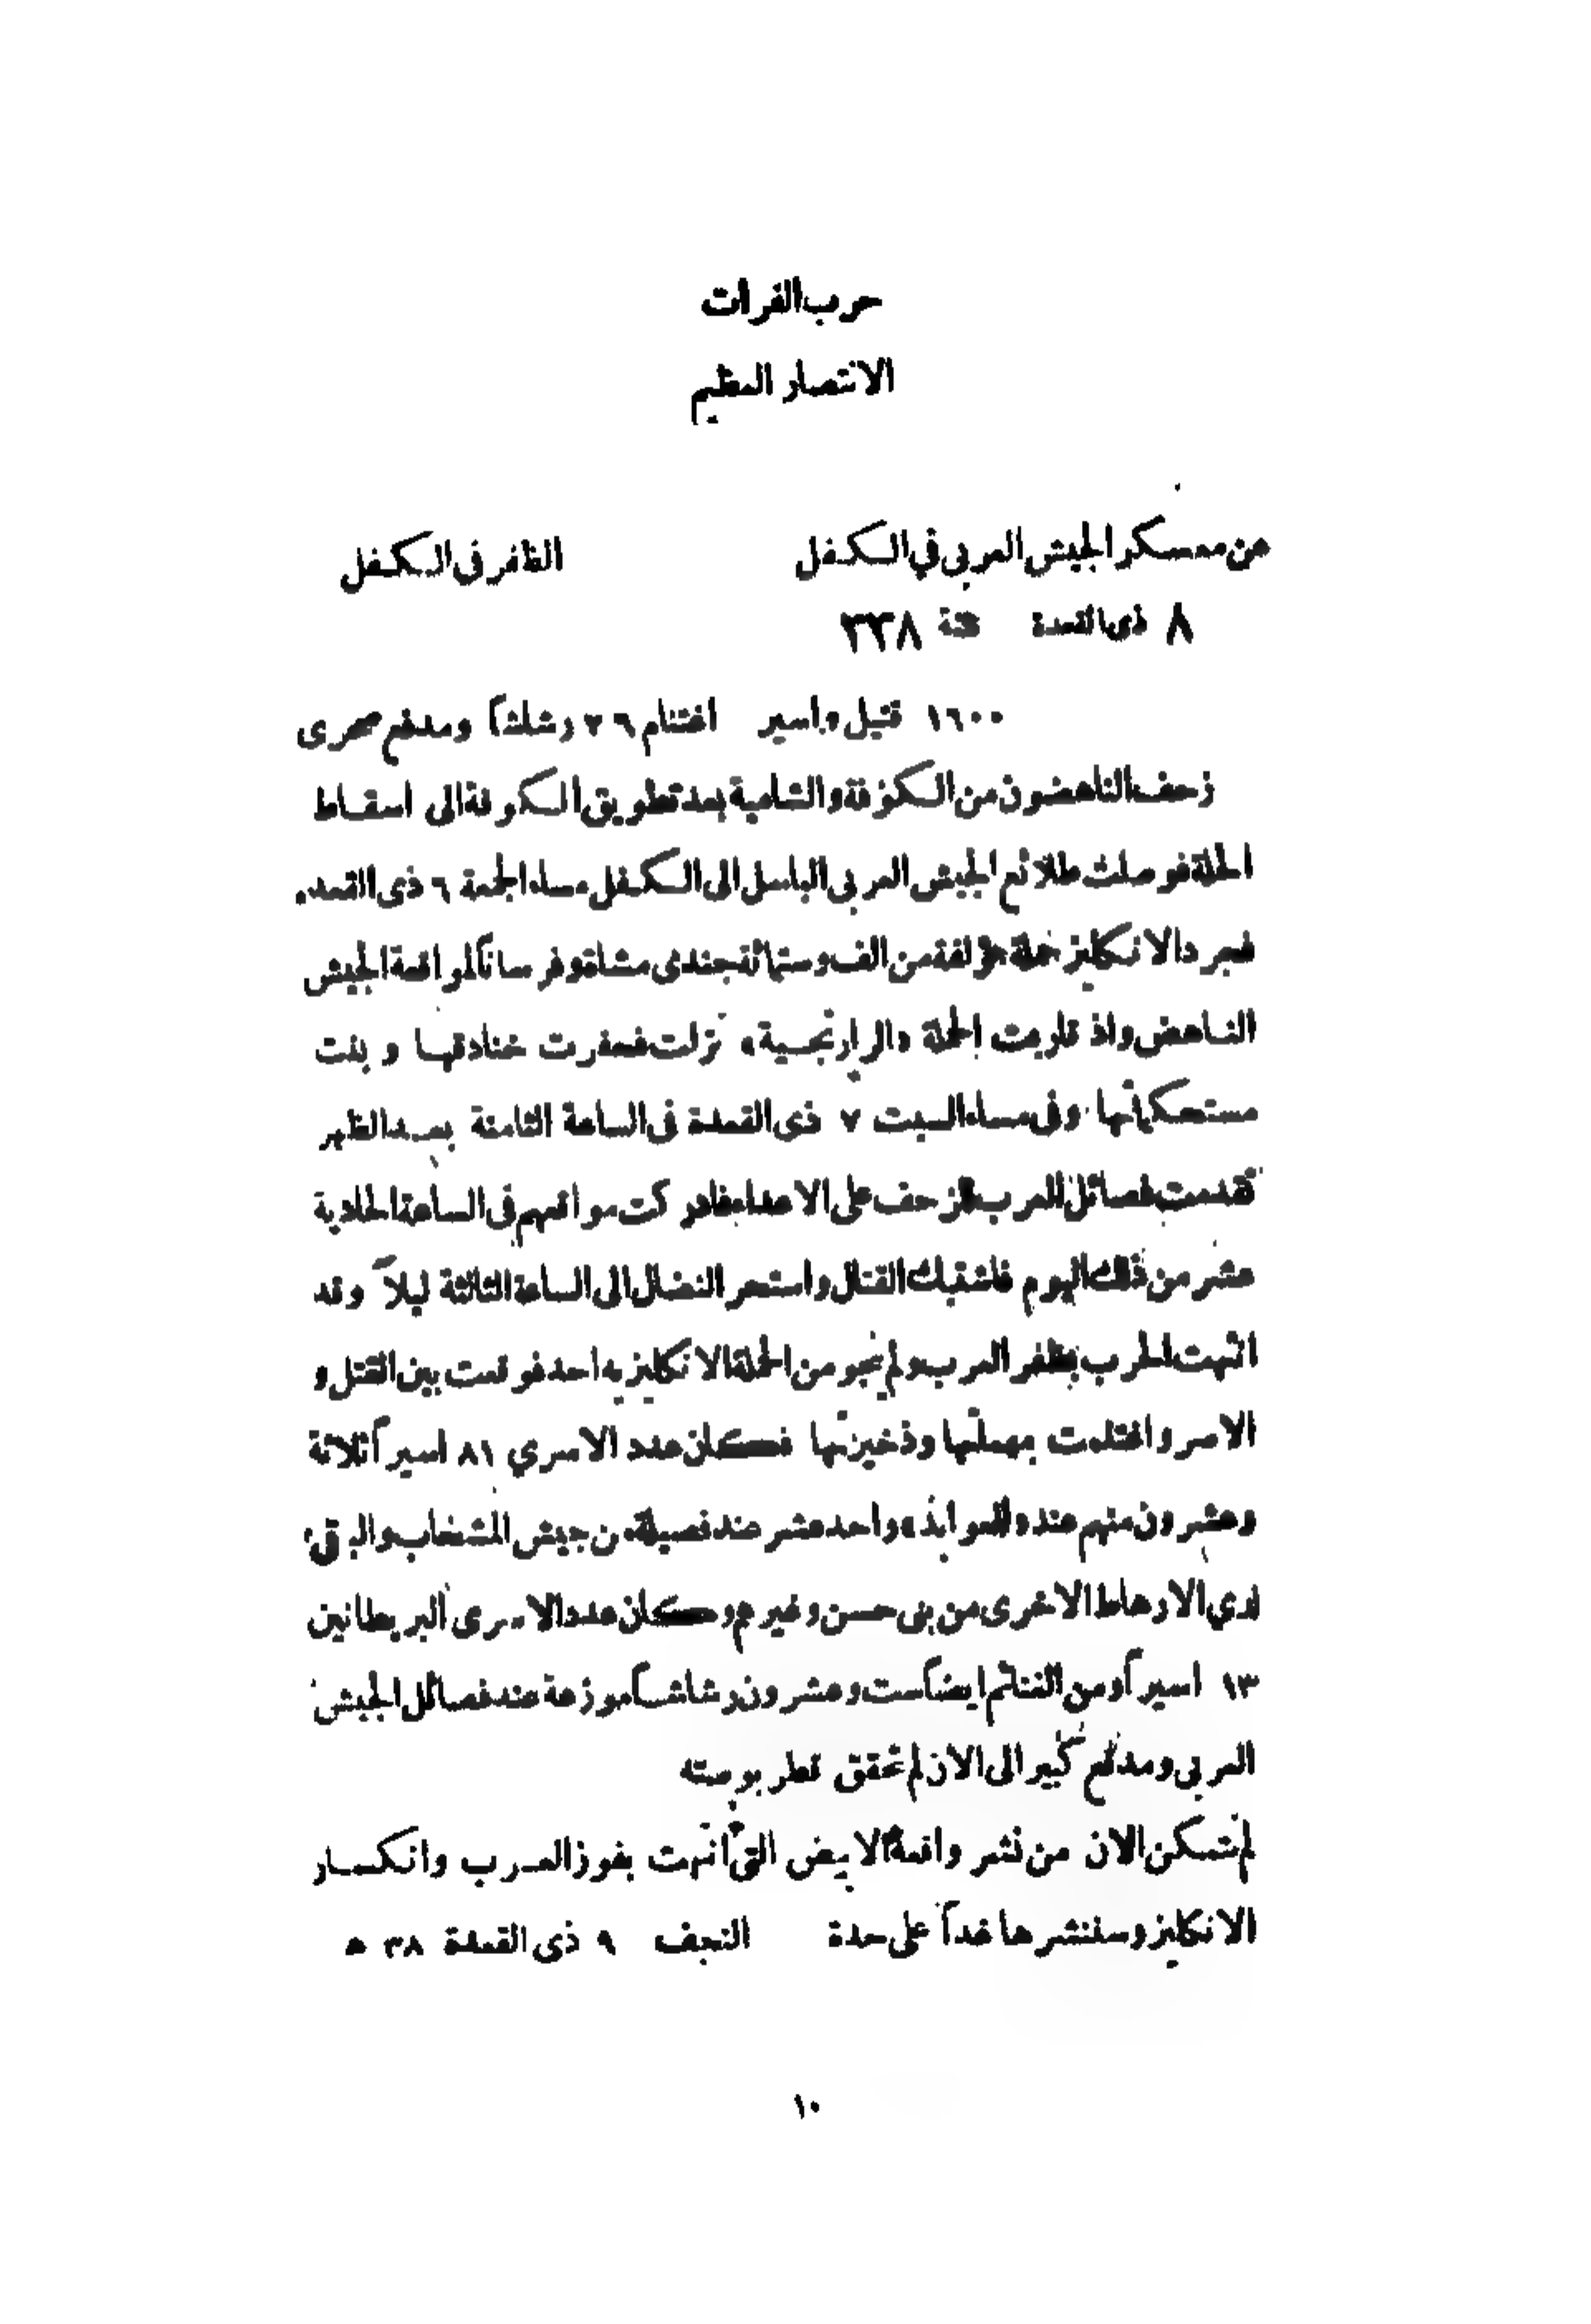 حرب الفرات
الانتصار العظيم
من معسكر الجيش العربي في الكفل الظافر في الكفل
٨ ذي القعدة سنة ٣٣٨
١٦٠٠ قتيل واسير اغتنام ٢٦ رشاشاً ومدفع صحرى
زحف الناهضون من الكوفة والشامية بعد تطويق الكوفة الى اسقاط
الحلة فوصلت طلائع الجيش العربي الباسل الى الكفل مساء الجمعة ٦ ذى القعده
فجرد الانكليز حملة مؤلفة من الف وستمائة جندى مشاة وفرساناً لمواقعة الجيش
الناهض واذ قاربت الحملة «الرارنجية» نزلت فحفرت خنادقها وبنت
مستحكماتها وفى مساء السبت ٧ ذى القعدة فى الساعة الثامنة بعد الظهر
تقدمت فصائل العرب للزحف على الاعداء فادركت مواقعهم فى الساعة الحادية
عشر من ذلك اليوم فاشتبك القتال واستعر النضال الى الساعة الثالثة ليلاً وقد
انتهت الحرب بظفر العرب ولم ينجو من الحملة الانكليزيه احد فوقعت بين القتل و
الاسر واغتنمت مهماتها وذخيرتها فكان عدد الاسري ٨١ اسيراً ثلاثة
وعشرون منهم عند «العوابذ» واحد عشر عند فصيلة من جيش المشخاب والباقى
لدي الارهاط الاخرى من بنى حسن وغيرهم وكان عدد الاسرى البريطانين
١٣ اسيراً ومن الغنائم ايضاً ست وعشرون رشاشاً موزعة عند فصائل الجيش
العربي ومدفع كبير الى الان لم نحقق قطر بوصته
لم نتمكن الان من نشر واقعة الابيض التى انتهت بفوز العرب وانكسار
الانكليز وسننشرها غداً على حدة النجف ٩ ذى القعدة ٣٨ ه
١٠